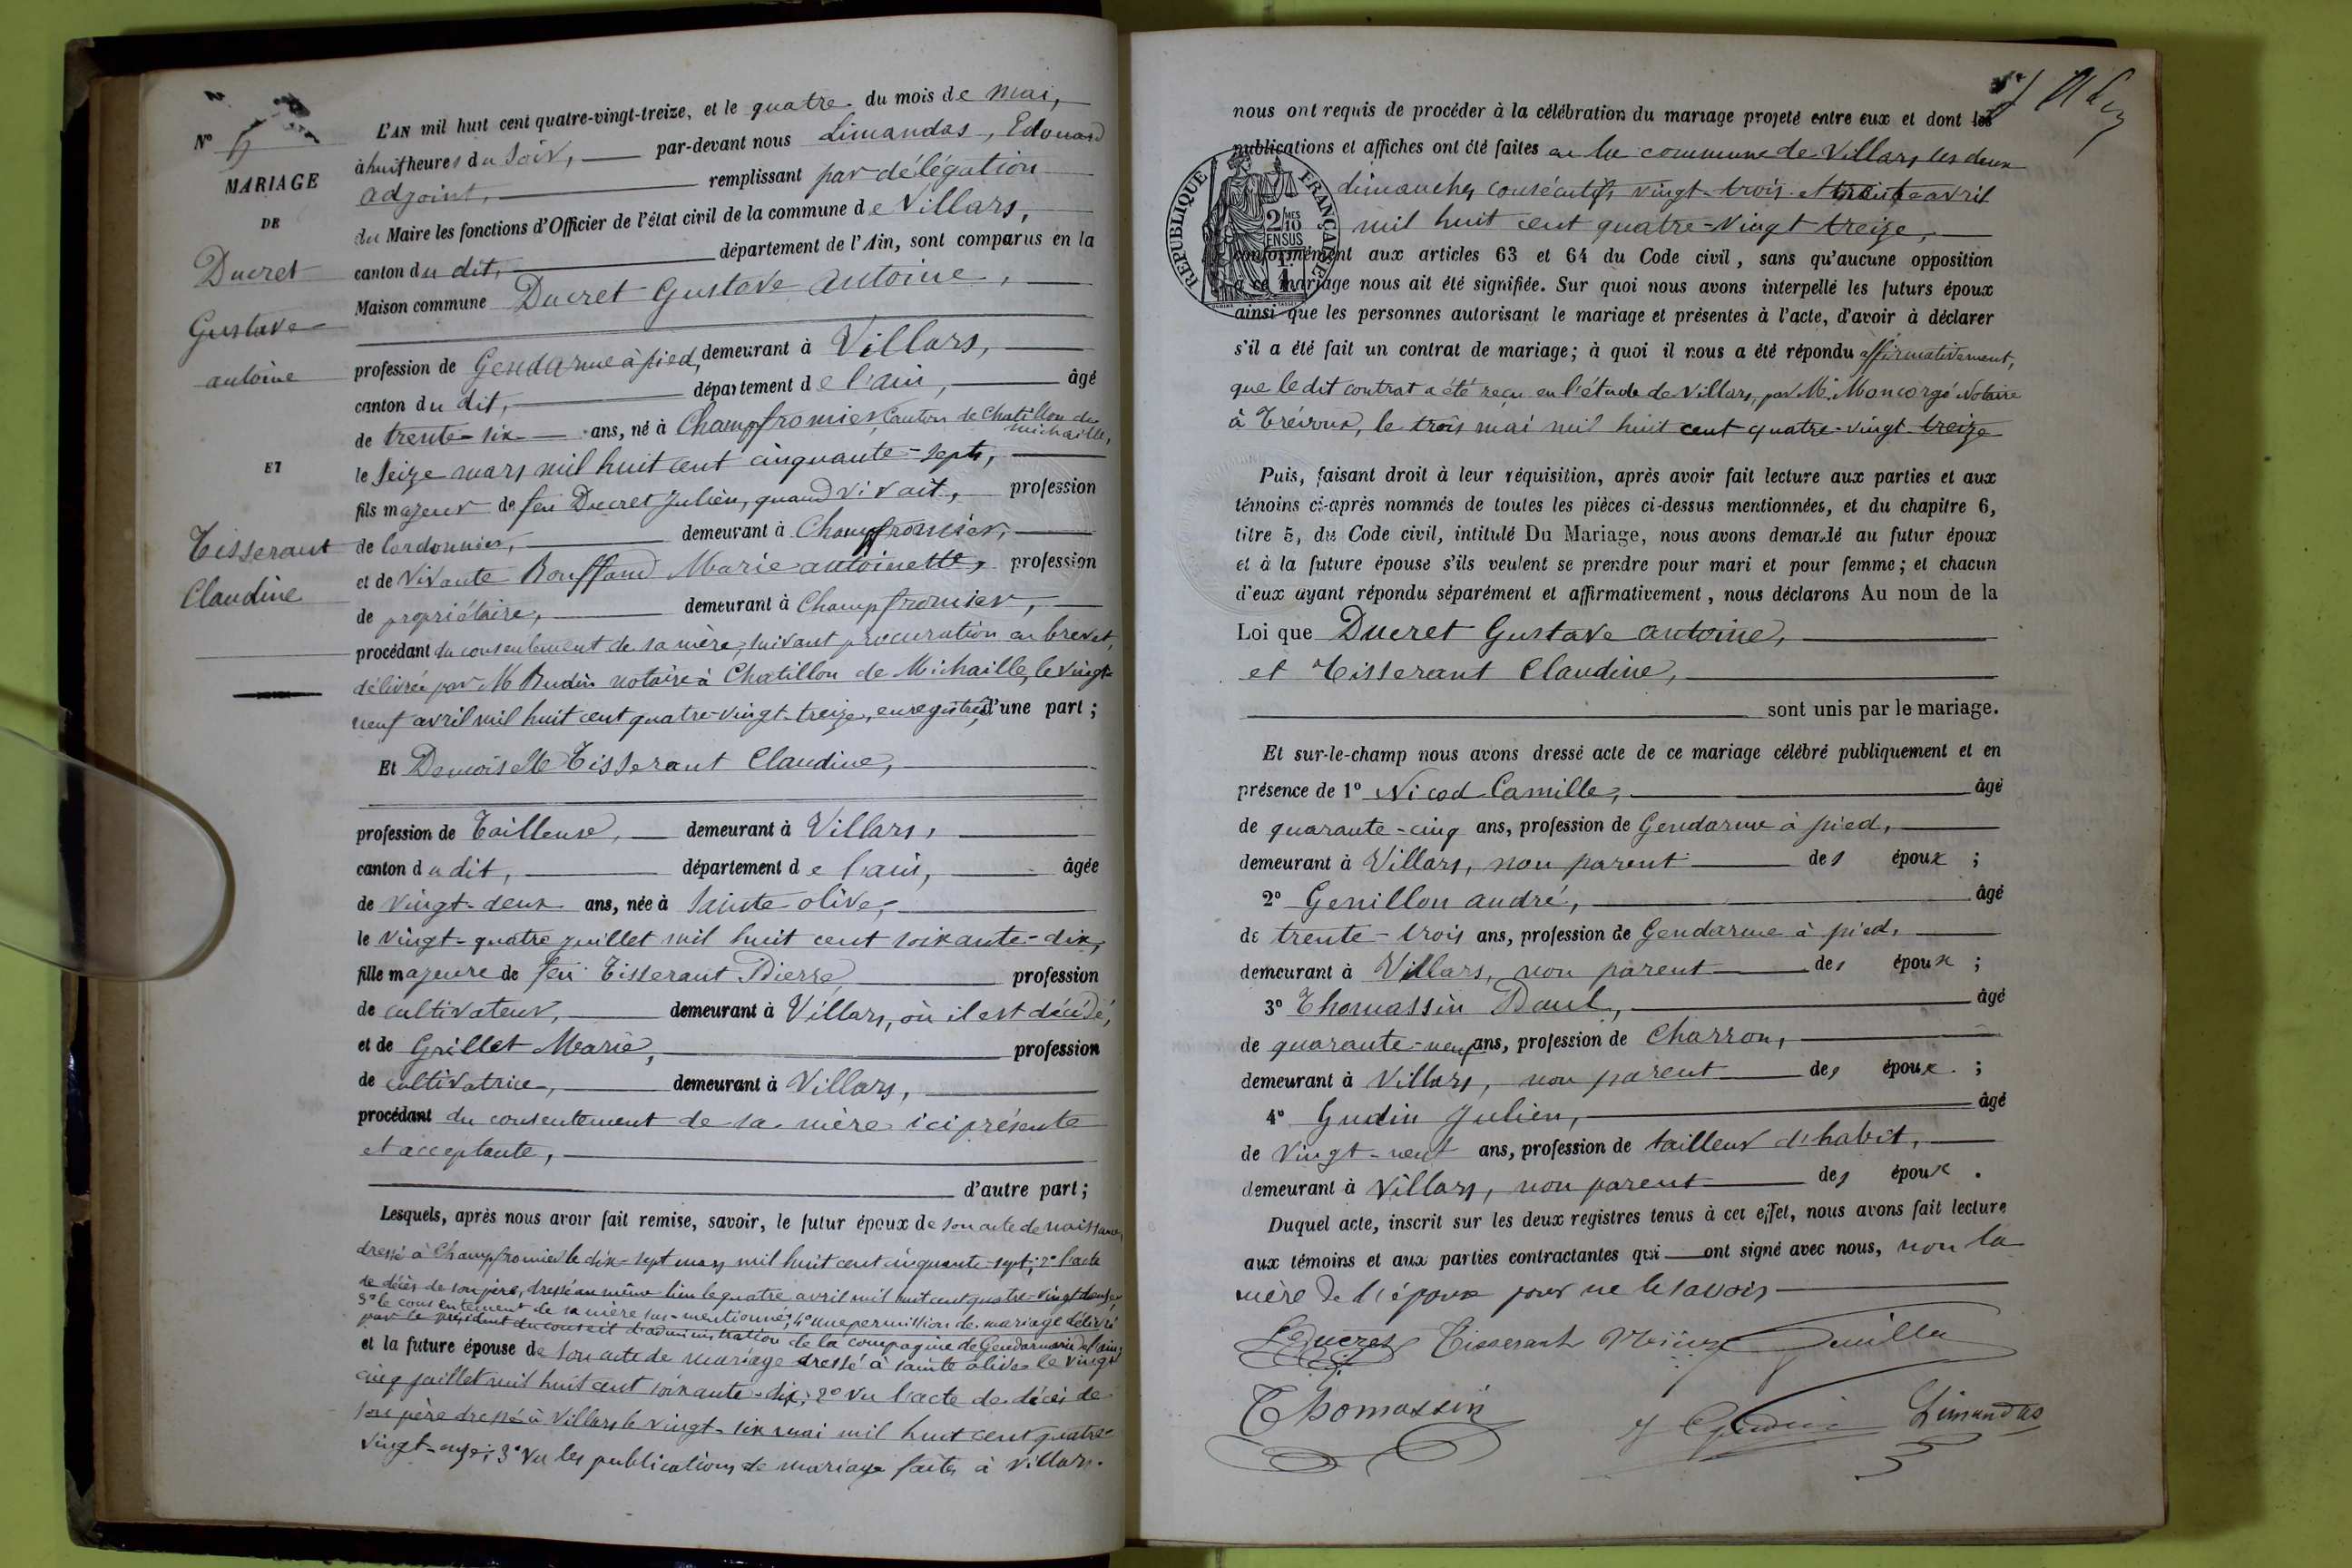 N° 5
MARIAGE
DE
Ducret
Gustave
antoine
ET
Tisserant
Claudine
L'AN mil huit cent quatre-vingt-treize, et le quatre du mois de mai,
à huit heures du soir, par-devant nous Limandas, Edouard
adjoint, remplissant par délégation
du Maire les fonctions d'Officier de l'état civil de la commune de Villars,
canton du dit, département de l'Ain, sont comparus en la
Maison commune Ducret Gustave antoine,
profession de Gendarme à pied, demeurant à Villars,
canton du dit, département de l'ain, âgé
de trente-six ans, né à Champfromier, Canton de Chatillon de
michaille,
le seize mars mil huit cent cinquante-sept,
fils majeur de feu Ducret Julien, quand vivait, profession
de Cordonnier, demeurant à Champfromier,
et de vivante Bouffand Marie antoinette, profession
de propriétaire, demeurant à Champfromier,
procédant du consentement de sa mère, suivant procuration en brevet,
délivrée par Me Budin notaire à Chatillon de Michaille, le vingt-
neuf avril mil huit cent quatre-vingt-treize, enregistrée, d'une part ;
Et Demoiselle Tisserant Claudine,
profession de Tailleuse, demeurant à Villars,
canton du dit, département de l'ain, âgée
de vingt-deux ans, née à Sainte olive,
le vingt-quatre juillet mil huit cent soixante-dix,
fille majeure de feu Tisserant Pierre, profession
de cultivateur, demeurant à Villars, où il est décédé,
et de Grillet Marie, profession
de cultivatrice, demeurant à Villars,
procédant du consentement de sa mère ici présente
et acceptante,
d'autre part ;
Lesquels, après nous avoir fait remise, savoir, le futur époux de son acte de naissance
dressé à Champfromier le dix-sept mars mil huit cent cinquante-sept ; 2° l'acte
de décès de son père, dressé au même lieu le quatre avril mil huit cent quatre-vingt-douze,
3° le consentement de sa mère sus-mentionné ; 4° une permission de mariage délivré
par le président du conseil d'administration de la compagnie de Gendarmerie de l'ain,
et la future épouse de son acte de mariage dressé à sainte olive le vingt
cinq juillet mil huit cent soixante-dix ; 2° vu l'acte de décès de
son père dressé à Villars le vingt-six mai mil huit cent quatre-
vingt-onze ; 3° vu les publications de mariage faites à Villars.
nous ont requis de procéder à la célébration du mariage projeté entre eux et dont les
publications et affiches ont été faites en la commune de Villars, les deux
dimanches consécutifs vingt-trois et trente avril
mil huit cent quatre-vingt treize,
conformément aux articles 63 et 64 du Code civil, sans qu'aucune opposition
à ce mariage nous ait été signifiée. Sur quoi nous avons interpellé les futurs époux
ainsi que les personnes autorisant le mariage et présentes à l'acte, d'avoir à déclarer
s'il a été fait un contrat de mariage ; à quoi il nous a été répondu affirmativement,
que le dit contrat a été reçu en l'étude de Villars, par Me. Moncorgé Notaire
à Trévoux, le trois mai mil huit cent quatre-vingt-treize
RÉPUBLIQUE FRANÇAISE
2/10MES
EN SUS
Puis, faisant droit à leur réquisition, après avoir fait lecture aux parties et aux
témoins ci-après nommés de toutes les pièces ci-dessus mentionnées, et du chapitre 6,
titre 5, du Code civil, intitulé Du Mariage, nous avons demandé au futur époux
et à la future épouse s'ils veulent se prendre pour mari et pour femme ; et chacun
d'eux ayant répondu séparément et affirmativement, nous déclarons Au nom de la
Loi que Ducret Gustave antoine,
et Tisserant Claudine,
sont unis par le mariage.
Et sur-le-champ nous avons dressé acte de ce mariage célébré publiquement et en
présence de 1° Nicod Camille, âgé
de quarante-cinq ans, profession de Gendarme à pied,
demeurant à Villars, non parent des époux ;
2° Genillon andré, âgé
de trente-trois ans, profession de Gendarme à pied,
demeurant à Villars, non parent des époux ;
3° Thomassin Paul, âgé
de quarante-neuf ans, profession de Charron,
demeurant à Villars, non parent des époux ;
4° Gudin Julien, âgé
de vingt-neuf ans, profession de tailleur d'habit,
demeurant à Villars, non parent des époux.
Duquel acte, inscrit sur les deux registres tenus à cet effet, nous avons fait lecture
aux témoins et aux parties contractantes qui ont signé avec nous, non la
mère de l'époux pour ne le savoir
Ducret Tisserant
Thomassin J Gudin Limandas